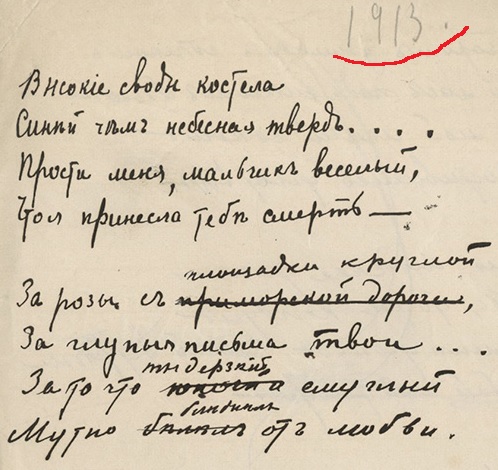 1913.
Высокіе своды костела
Синѣй чѣмъ небесная твердь....
Прости меня, мальчикъ веселый,
Что я принесла тебѣ смерть —
площадки круглой
За розы съ приморской дороги,
За глупыя письма твои...
ты дерзкій
За то что смуглый
блѣднѣлъ
Мутно отъ любви.